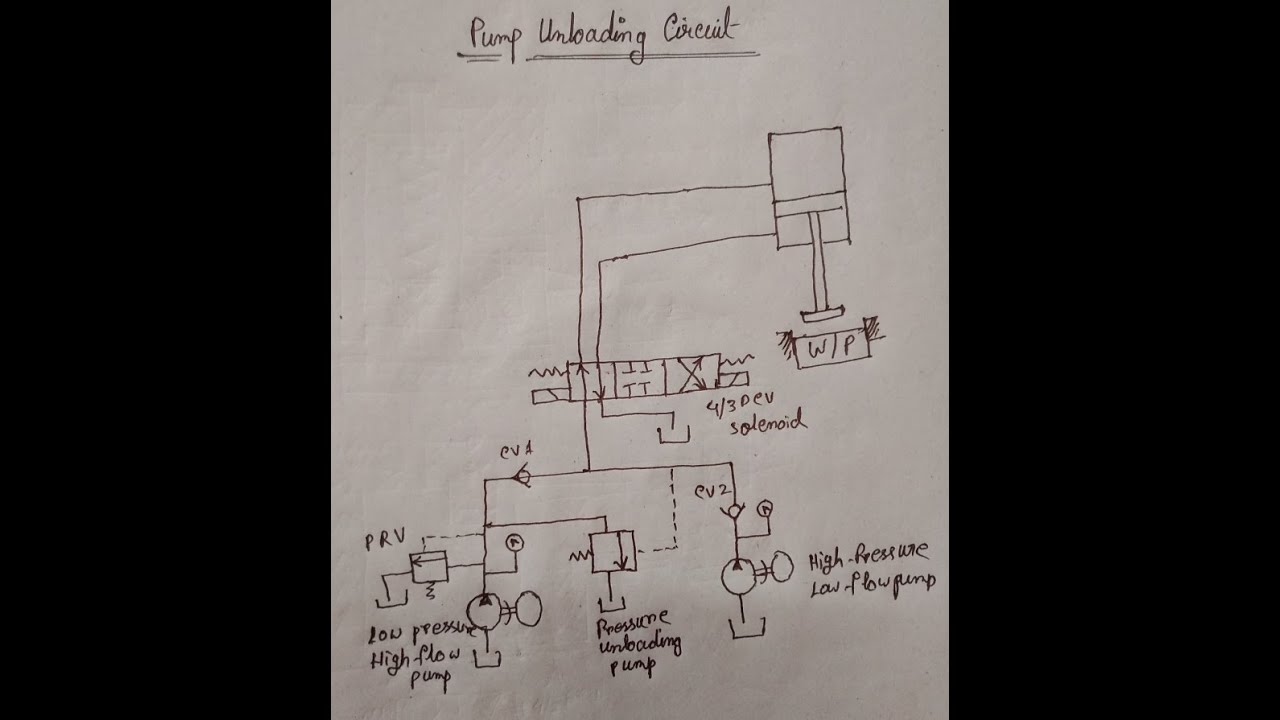 Pump Unloading Circuit
W/P
4/3 DCV
solenoid
CV1
CV2
PRV
High-Pressure
Low-flow pump
Low pressure
High-flow
pump
Pressure
unloading
pump